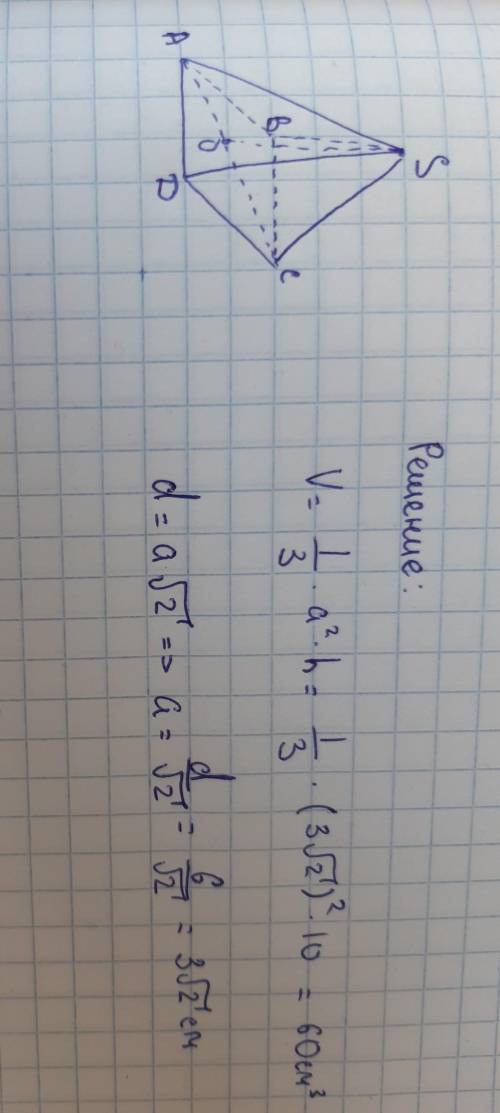 S
A
B
O
D
C
Решение:
V = 1/3 · a² · h = 1/3 · (3√2)² · 10 = 60см³
d = a·√2 => a = d/√2 = 6/√2 = 3√2 см